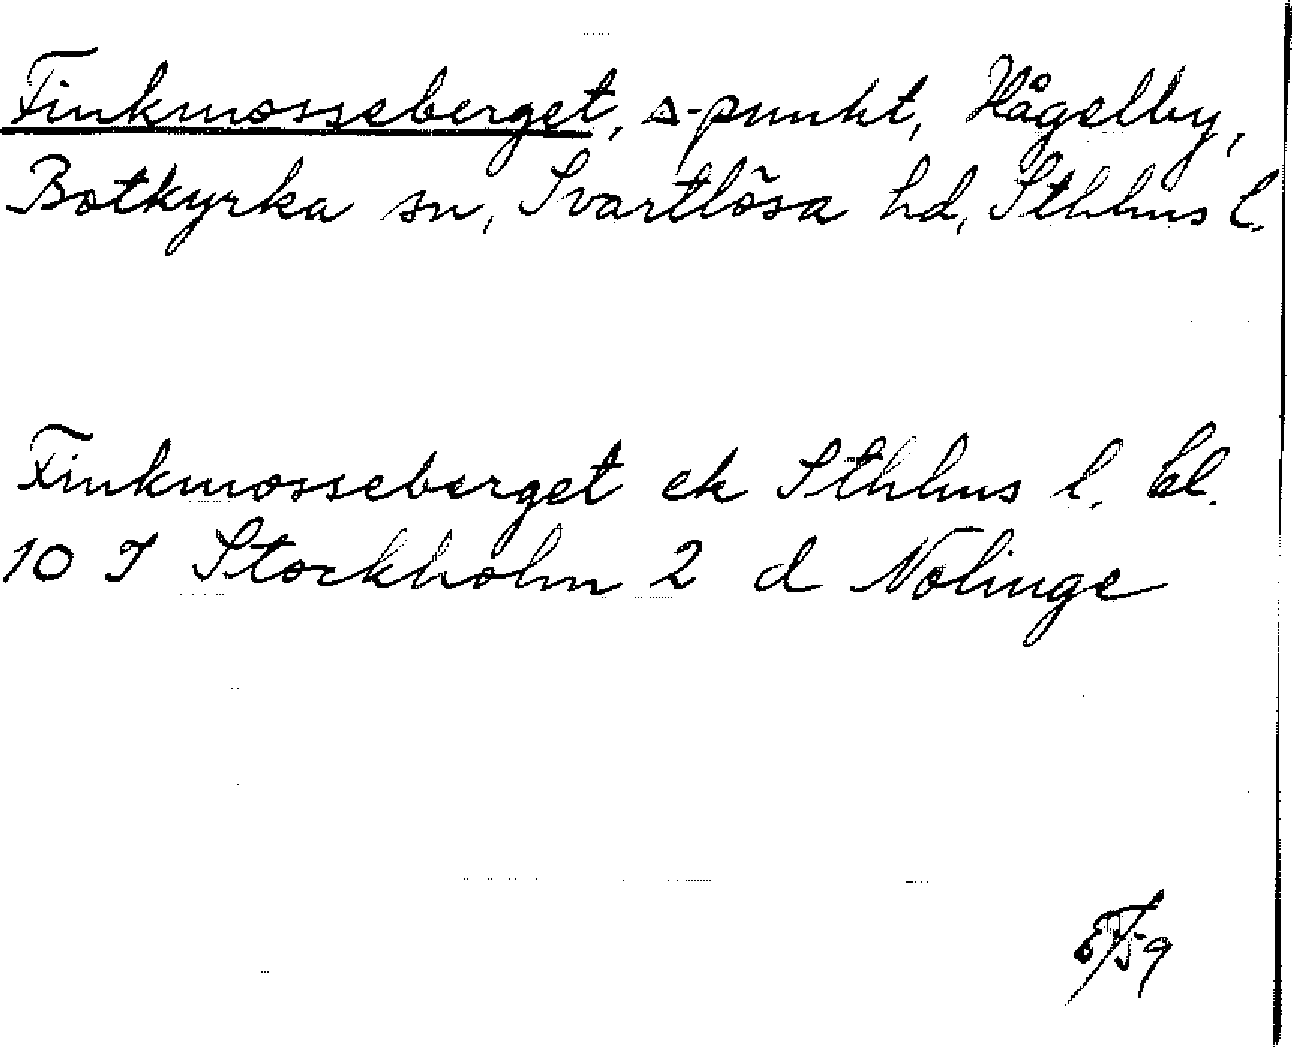 Finkmosseberget, △-punkt, Hågelby,
Botkyrka sn, Svartlösa hd, Sthlms l.
Finkmosseberget ek Sthlms l. bl.
10 I Stockholm 2 d Nolinge